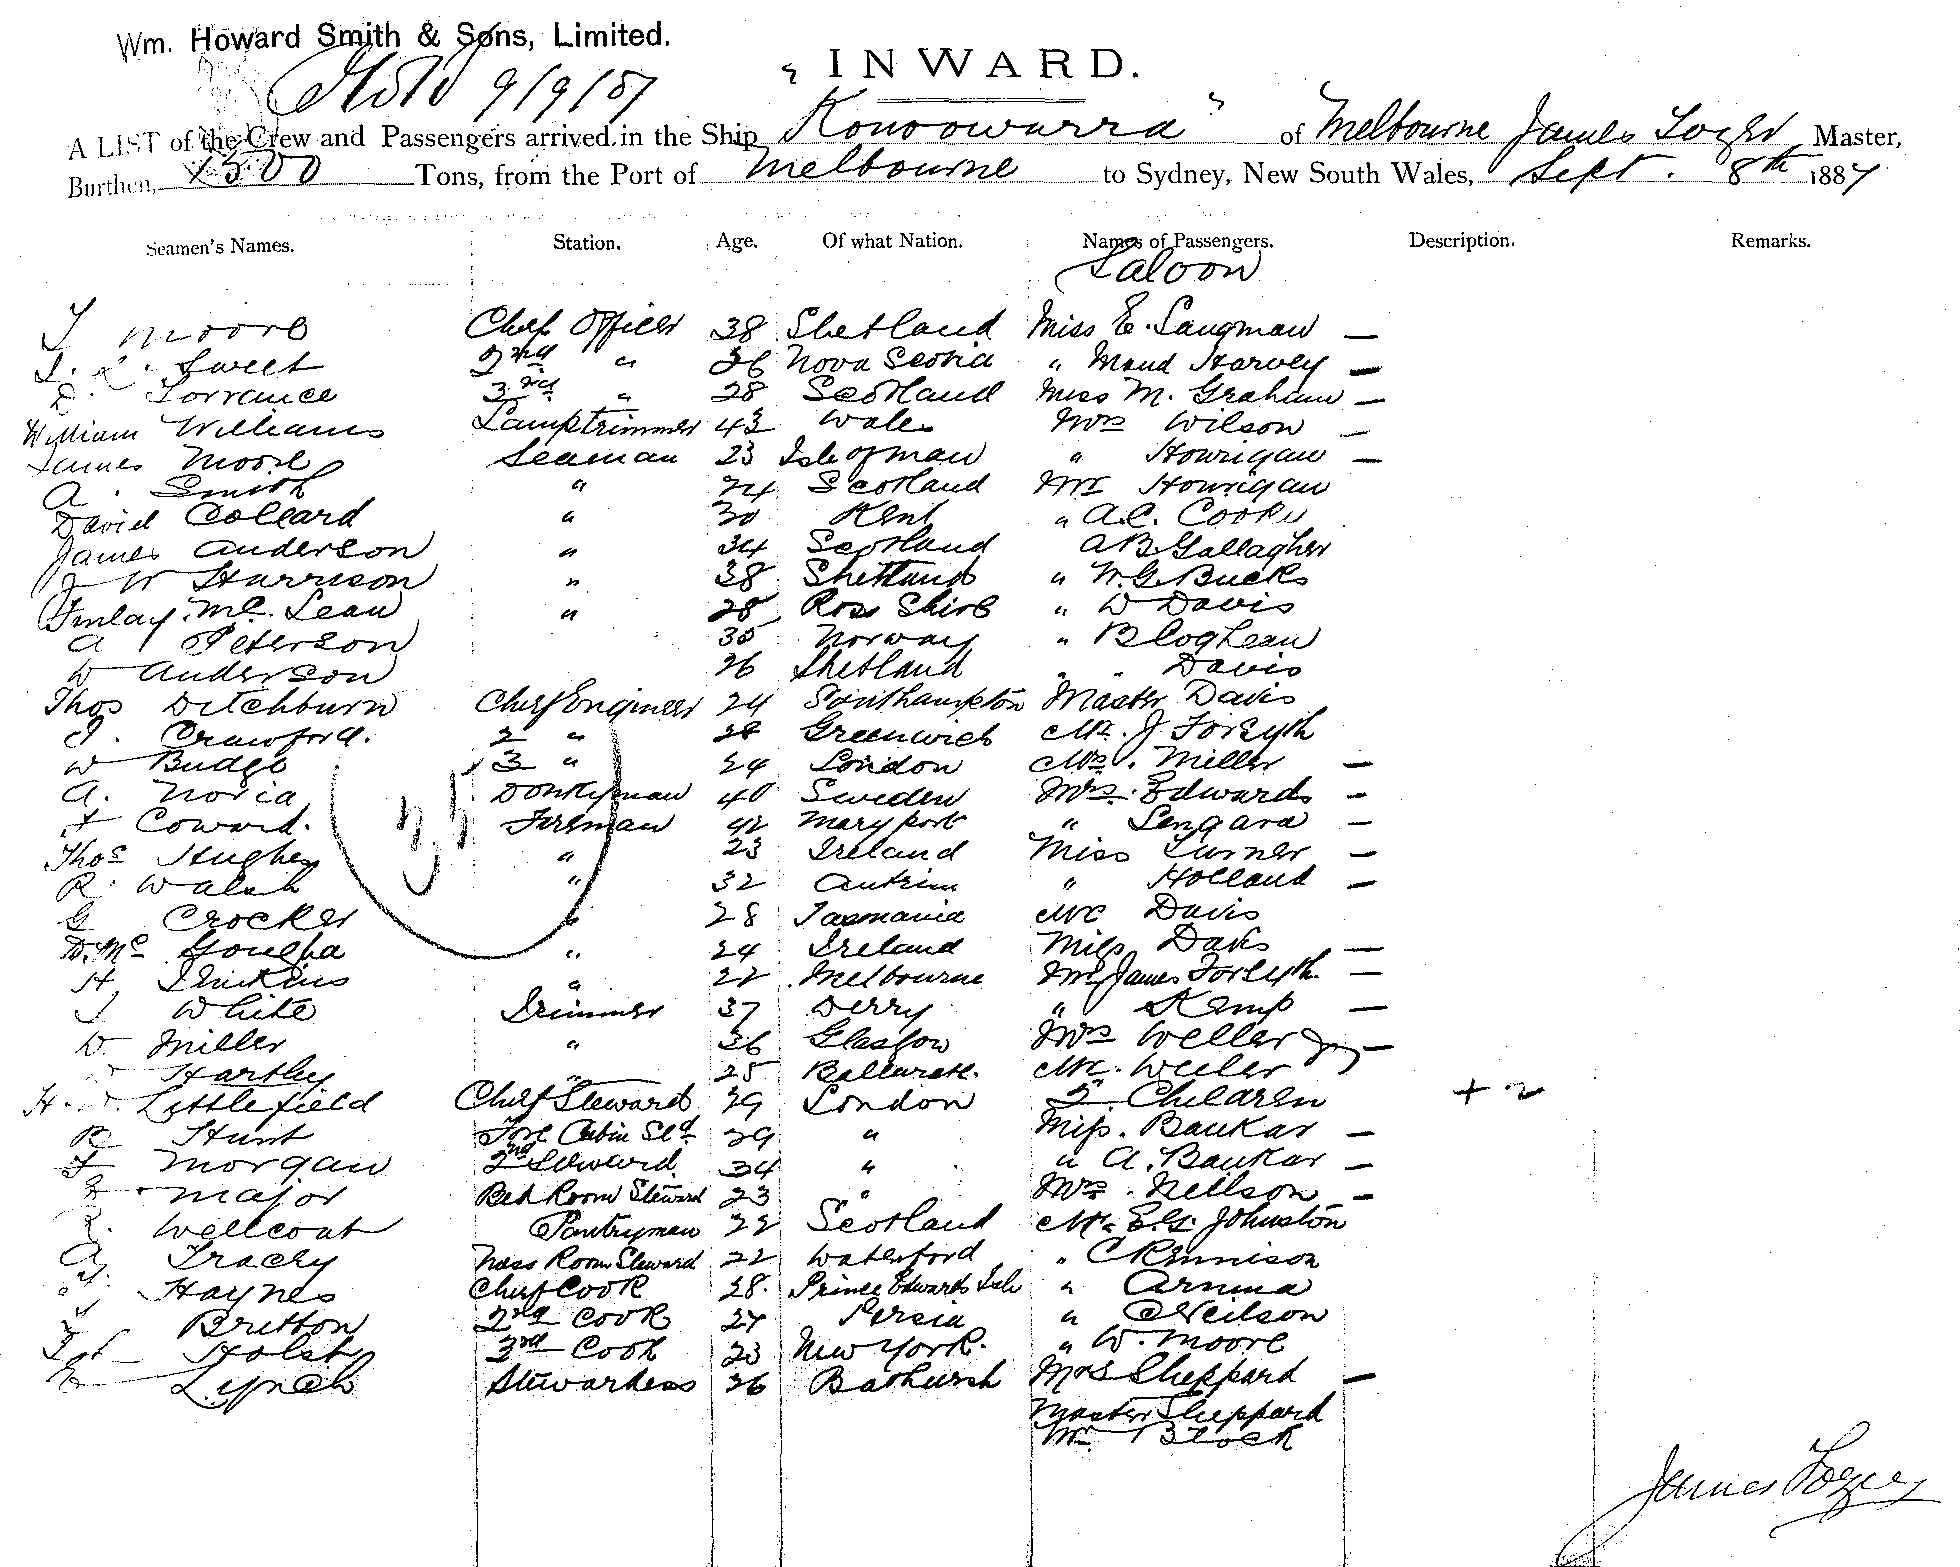 Wm. Howard Smith & Sons, Limited.
9/9/87
" INWARD.
A LIST of the Crew and Passengers arrived in the Ship Konoowarra " of Melbourne James Master,
Burthen, 1300 Tons, from the Port of Melbourne to Sydney, New South Wales, Sept. 8th 1887
Seamen's Names. Station. Age. Of what Nation. Names of Passengers. Description. Remarks.
Saloon
Moore Chief Officer 38 Shetland Miss E. Langman —
Sweet 2nd " 36 Nova Scotia " Maud Harvey —
D. Torrance 3rd " 28 Scotland Miss M. Graham —
William Williams Lamptrimmer 43 Wales Mrs Wilson —
James Moore Seaman 23 Isle of Man " Hourigan —
A. Smith " 24 Scotland Mr Hourigan
David Collard " 30 Kent " A.C. Cooke
James Anderson " 34 Scotland A B Gallagher
J W Harrison " 38 Shetland " W.G. Bucks
Finlay Mc. Lean " 28 Ross Shire " W Davis
A Peterson 35 Norway " B Coghlean
W Anderson 26 Shetland " " Davis
Thos Ditchburn Chief Engineer 24 Southampton Master Davis
J. Crawford. 2 " 28 Greenwich Mr. J. Forsyth
W Budge 3 " 24 London Mrs. Miller —
A. Noria Donkeyman 40 Sweden Mrs. Edwards —
F Coward. Fireman 42 Maryport " Sengara —
Thos Hughes " 23 Ireland Miss Turner —
R. Walsh " 32 Antrim " Holland —
G Crocker " 28 Tasmania Mr Davis
D. Mc " 24 Ireland Miss Davis —
H. Jenkins " 22 Melbourne Mr James Forsyth. —
J White Trimmer 37 Derry " Kemp —
W. Miller " 36 Glasgow Mrs Weller —
Hartley " 25 Ballarat. Mr. Weller
H. Littlefield Chief Steward 29 London 5 Children + 2
R Hunt Fore Cabin Std 29 " Miss. Baukar —
F Morgan 2nd Steward 34 " " A. Baukar —
Major Bed Room Steward 23 " Mrs. Neilson —
R. Wellcoat Pantryman 22 Scotland Mr. E.G. Johnston
A. Tracey Mess Room Steward 22 Waterford " C Rennison
Haynes Chief Cook 28. Prince Edwards Isle "
Britton 2nd Cook 27 Persia " Neilson
Holst 3rd Cook 23 New York. " W. Moore
Lynch Stewardess 26 Bathurst Mrs Sheppard —
Master Sheppard
Mr Block
James